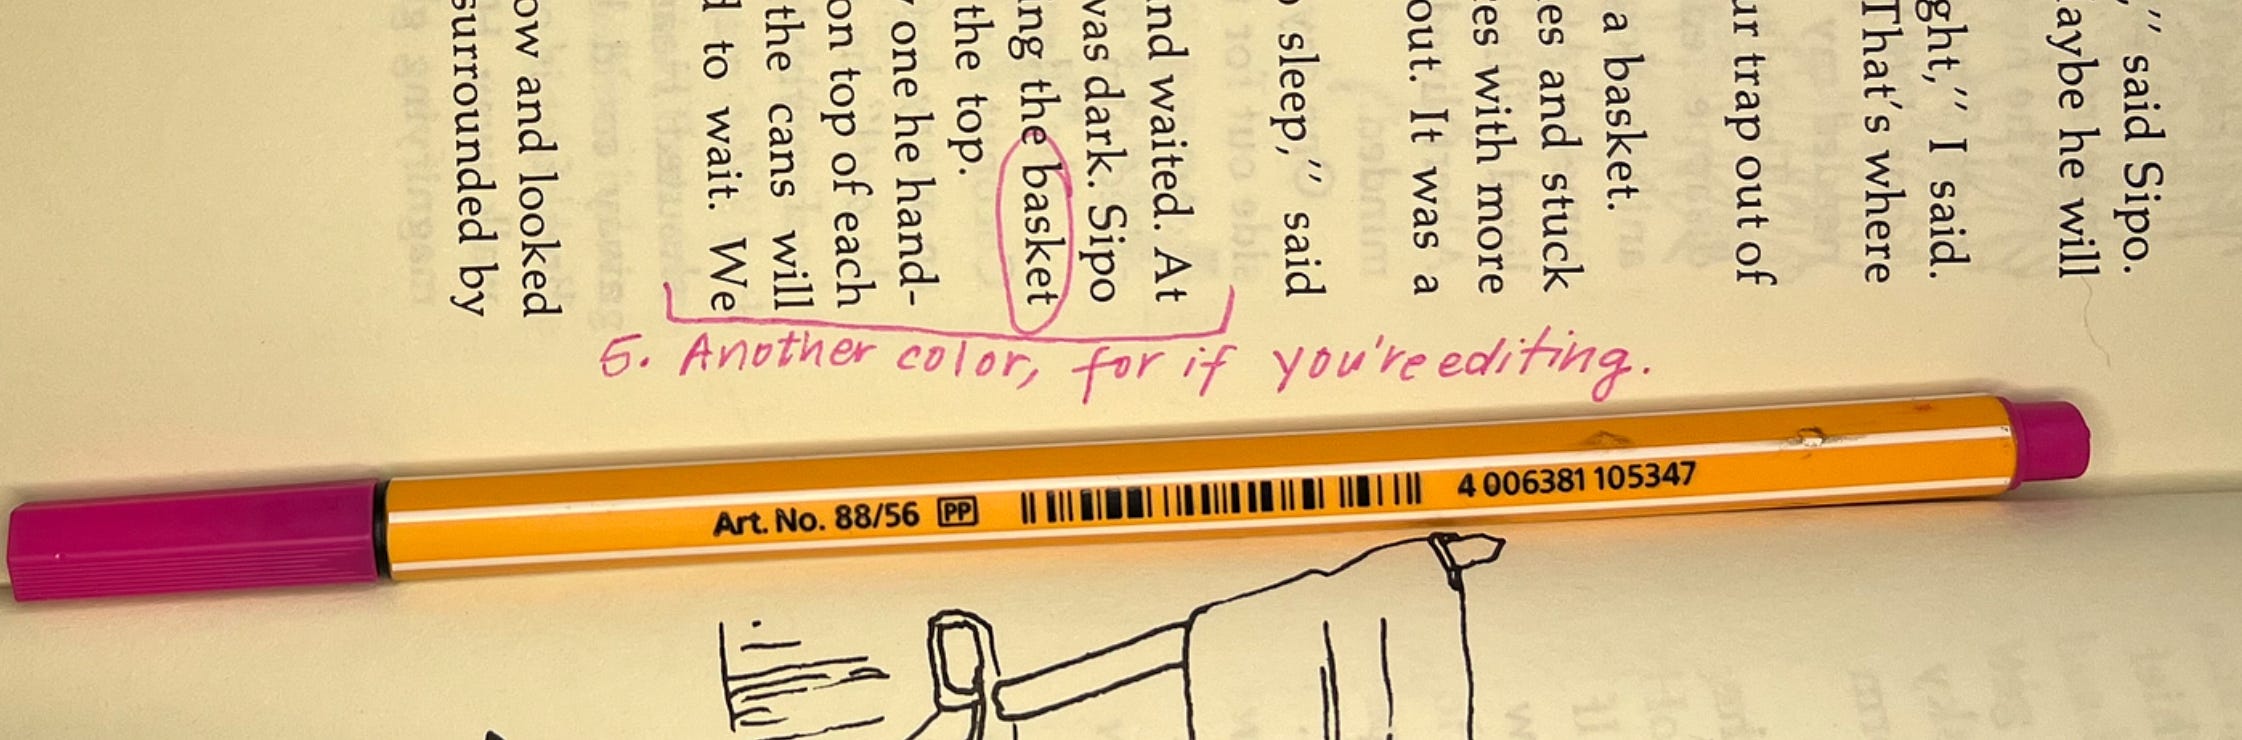 ," said Sipo.
aybe he will
ght," I said.
That's where
ur trap out of
a basket.
es and stuck
es with more
out. It was a
sleep," said
nd waited. At
was dark. Sipo
ng the basket
the top.
one he hand-
on top of each
the cans will
d to wait. We
ow and looked
surrounded by
5. Another color, for if you're editing.
Art. No. 88/56 PP 4 006381 105347